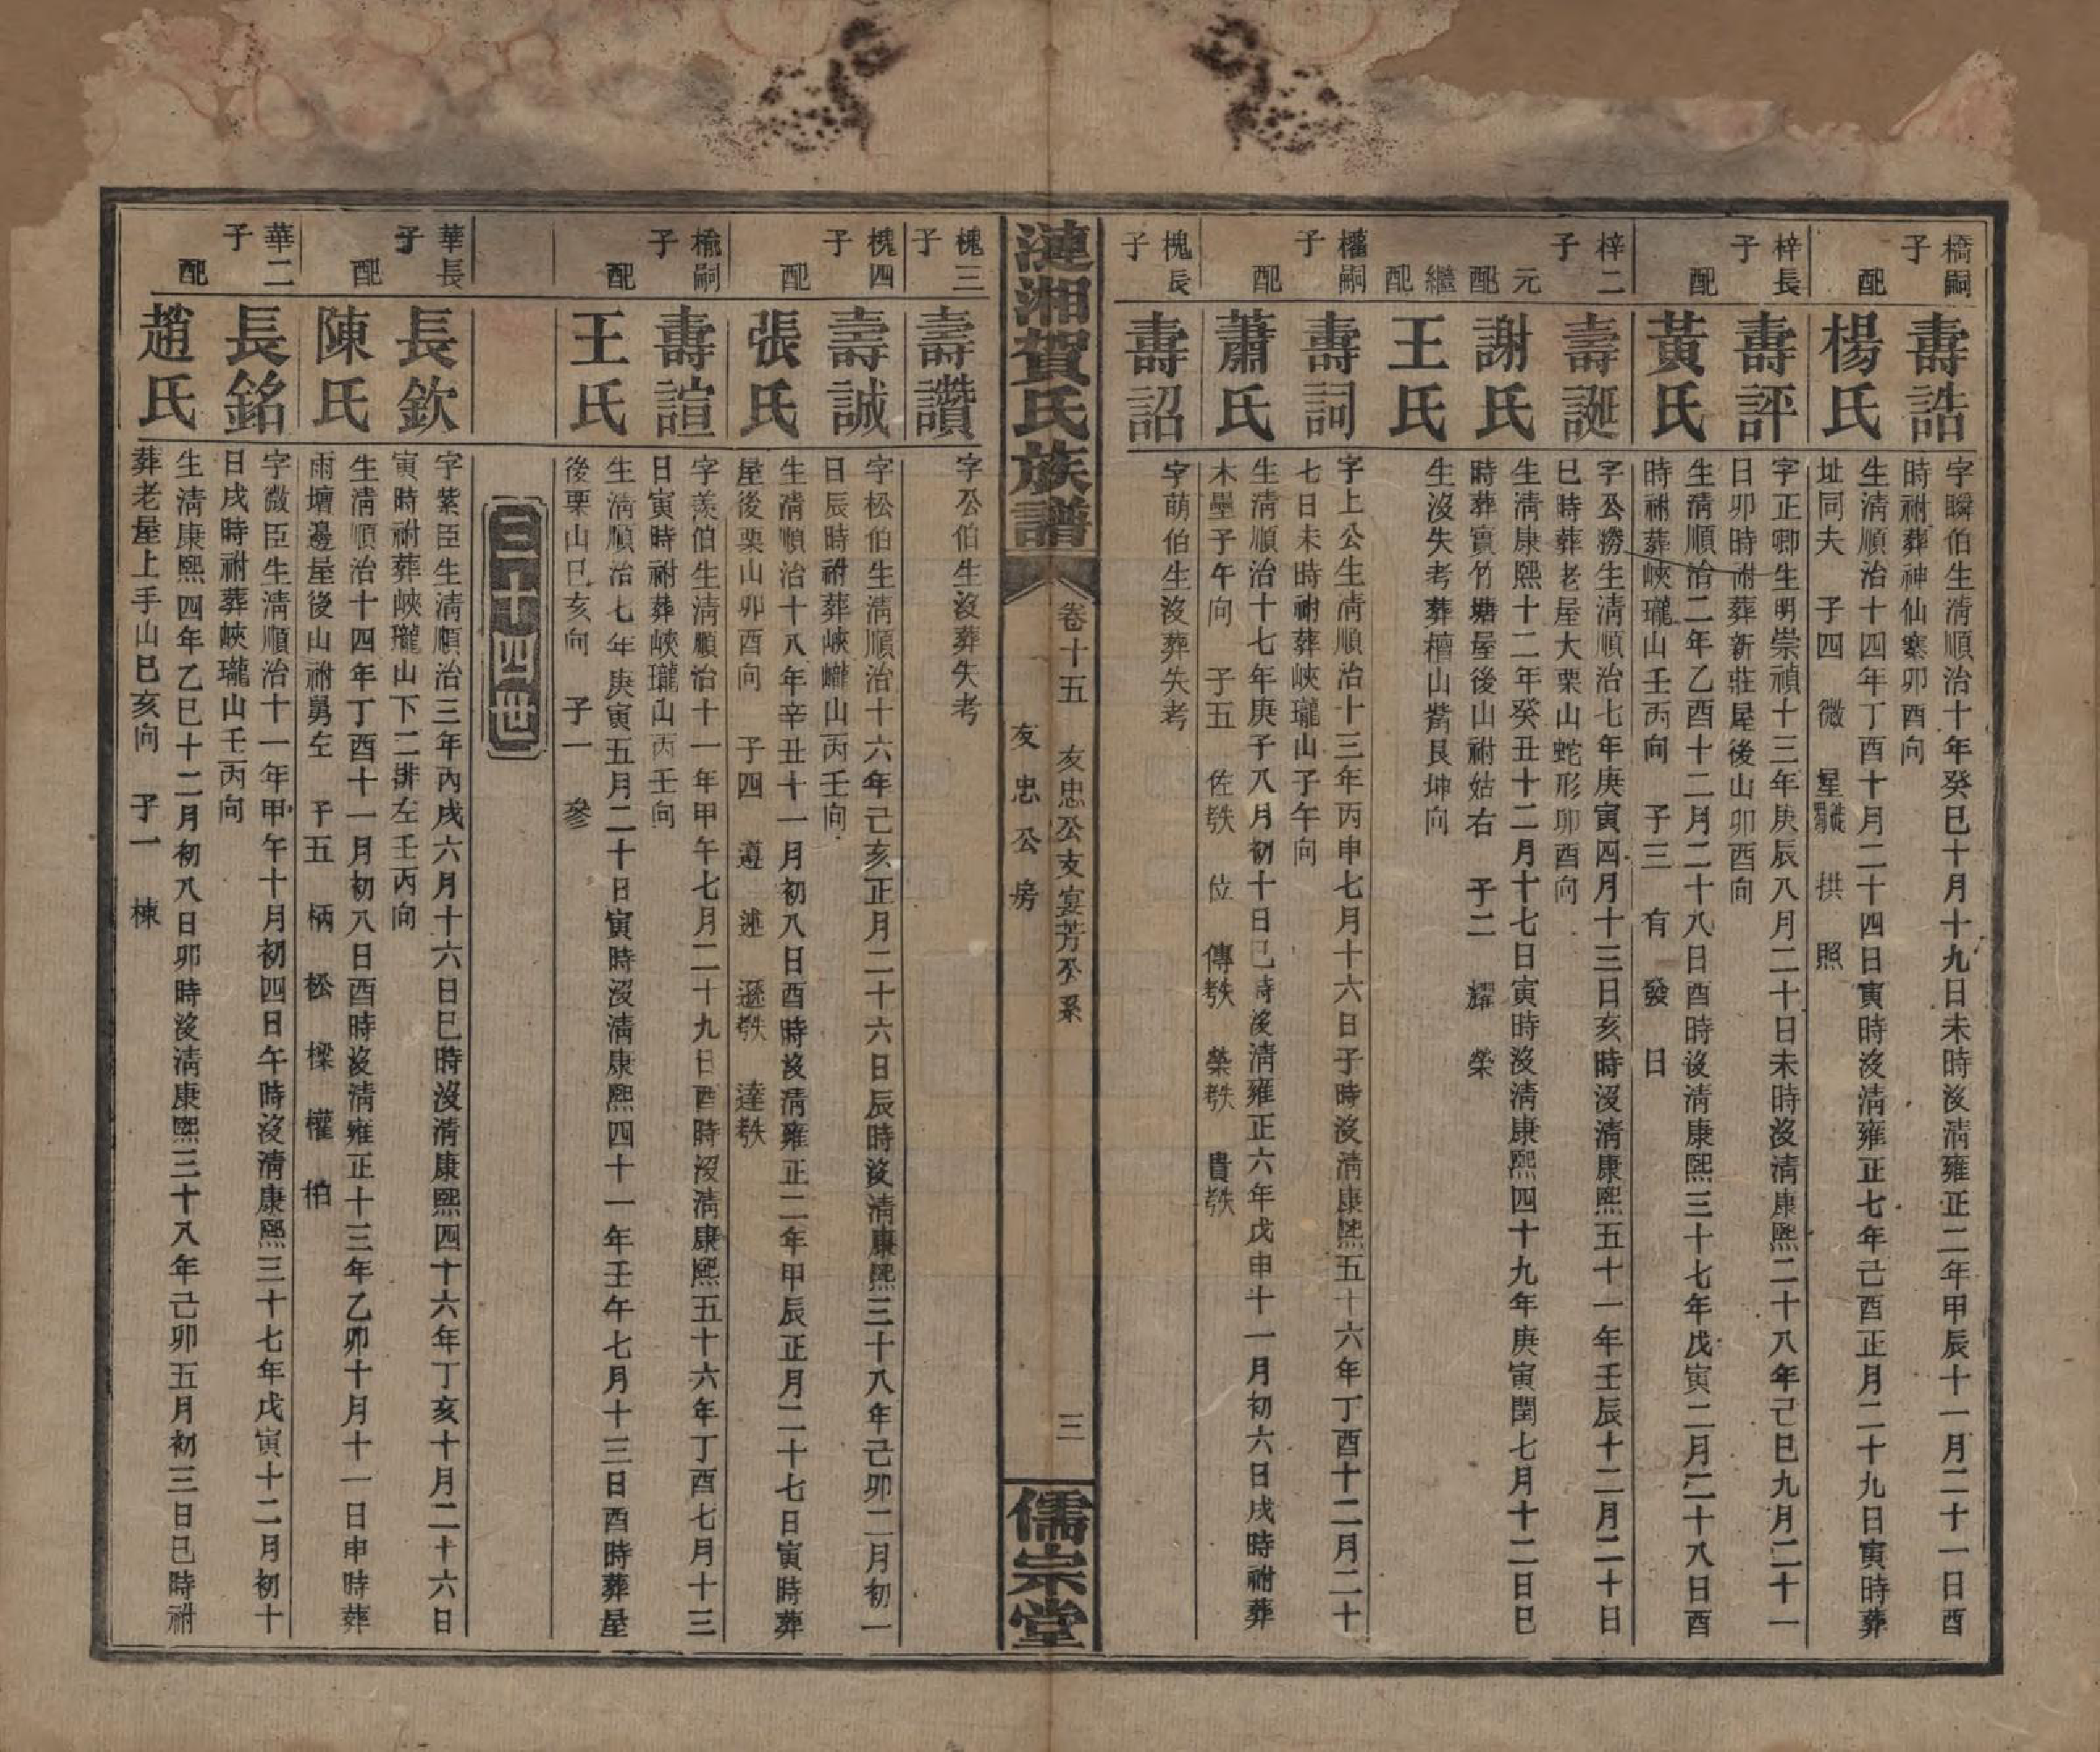 橋嗣子
壽誥
字瞬伯生淸順治十年癸巳十月十九日未時沒淸雍正二年甲辰十一月二十一日酉
時祔葬神仙寨卯酉向
配
楊氏
生淸順治十四年丁酉十月二十四日寅時沒淸雍正七年己酉正月二十九日寅時葬
址同夫 子四 微 星 拱 照
梓長子
壽評
字正卿生明崇禎十三年庚辰八月二十日未時沒淸康熙二十八年己巳九月二十一
日卯時祔葬新莊屋後山卯酉向
配
黃氏
生淸順治二年乙酉十二月二十八日酉時後淸康熙三十七年戊寅二月二十八日酉
時祔葬峽瓏山壬丙向 子三 有 發 日
梓二子
壽誕
字公勝生淸順治七年庚寅四月十三日亥時沒淸康熙五十一年壬辰十二月二十日
巳時葬老屋大栗山蛇形卯酉向
元配
謝氏
生淸康熙十二年癸丑十二月十七日寅時沒淸康熙四十九年庚寅閏七月十二日巳
時葬實竹塘屋後山祔姑右 子二 耀 榮
繼配
王氏
生沒失考葬檀山觜艮坤向
權嗣子
壽詞
字上公生淸順治十三年丙申七月十六日子時沒淸康熙五十六年丁酉十二月二十
七日未時祔葬峽瓏山子午向
配
蕭氏
生淸順治十七年庚子八月初十日巳時沒淸雍正六年戊申十一月初六日戌時祔葬
木壘子午向 子五 佐殀 位 傳殀 榮殀 貴殀
槐長子
壽詔
字萌伯生沒葬失考
漣湘賀氏族譜
卷十五 友忠公支宴芳公系
友忠公房
三
儒宗堂
槐三子
壽讚
字公伯生沒葬失考
槐四子
壽誠
字松伯生淸順治十六年己亥正月二十六日辰時沒淸康熙三十八年己卯二月初一
日辰時祔葬峽瓏山丙壬向
配
張氏
生淸順治十八年辛丑十一月初八日酉時沒淸雍正二年甲辰正月二十七日寅時葬
屋後栗山卯酉向 子四 遵 述 遜殀 達殀
榆嗣子
壽諠
字羨伯生淸順治十一年甲午七月二十九日酉時沒淸康熙五十六年丁酉七月十三
日寅時祔葬峽瓏山丙壬向
配
王氏
生淸順治七年庚寅五月二十日寅時沒淸康熙四十一年壬午七月十三日酉時葬屋
後栗山巳亥向 子一 參
三十四世
華長子
長欽
字紫臣生淸順治三年丙戌六月十六日巳時沒淸康熙四十六年丁亥十月二十六日
寅時祔葬峽瓏山下二排左壬丙向
配
陳氏
生淸順治十四年丁酉十一月初八日酉時沒淸雍正十三年乙卯十月十一日申時葬
雨壇邊屋後山祔舅左 子五 柄 松 樑 權 柏
華二子
長銘
字微臣生淸順治十一年甲午十月初四日午時沒淸康熙三十七年戊寅十二月初十
日戌時祔葬峽瓏山壬丙向
配
趙氏
生淸康熙四年乙巳十二月初八日卯時沒淸康熙三十八年己卯五月初三日巳時祔
葬老屋上手山巳亥向 子一 棟